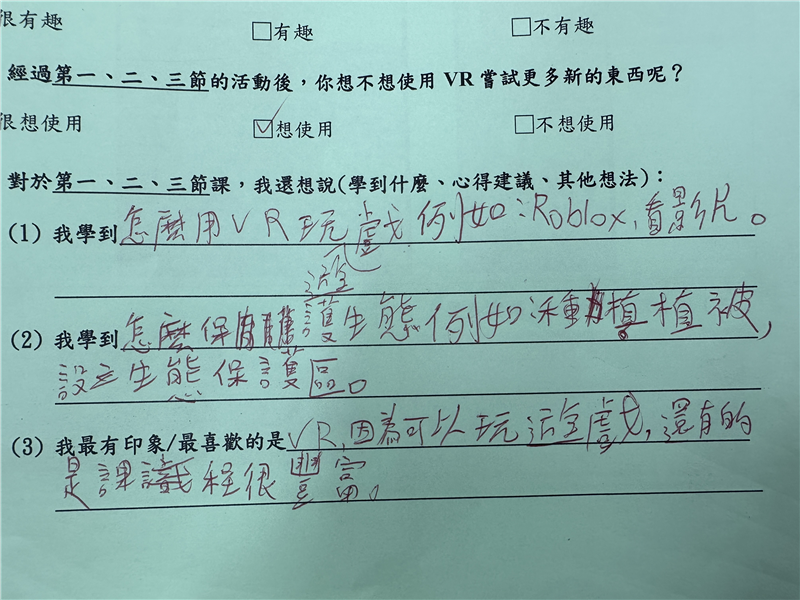 很有趣 □有趣 □不有趣
經過第一、二、三節的活動後，你想不想使用 VR 嘗試更多新的東西呢？
很想使用 ☑想使用 □不想使用
對於第一、二、三節課，我還想說(學到什麼、心得建議、其他想法)：
(1) 我學到怎麼用VR玩戲例如：Roblox,看影片。
遊
(2) 我學到怎麼保護生態例如種植植被,
設立生態保護區。
(3) 我最有印象/最喜歡的是VR,因為可以玩遊戲,還有的
是課程很豐富。